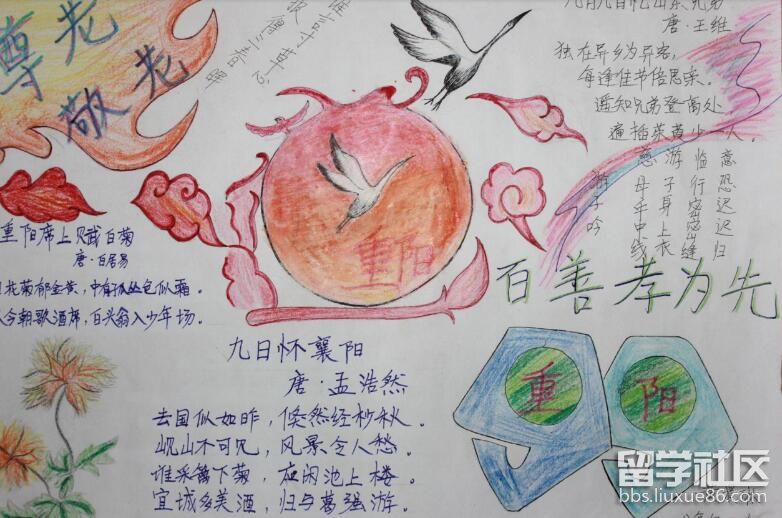 尊老
敬老
谁言寸草心
报得三春晖
九月九日忆山东兄弟
唐·王维
独在异乡为异客，
每逢佳节倍思亲。
遥知兄弟登高处，
遍插茱萸少一人。
游子吟
慈母手中线
游子身上衣
临行密密缝
意恐迟迟归
重阳席上赋白菊
唐·白居易
菊郁金黄，中有孤丛色似霜。
今朝歌酒席，白头翁入少年场。
重阳
百善孝为先
九日怀襄阳
唐·孟浩然
去国似如昨，倏然经杪秋。
岘山不可见，风景令人愁。
谁采篱下菊，应闲池上楼。
宜城多美酒，归与葛强游。
重
阳
留学社区
bbs.liuxue86.com